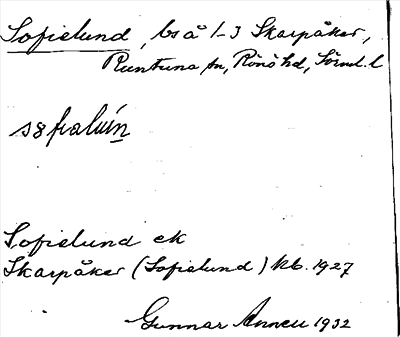 Sofielund, bs å 1-3 Skarpåker,
Runtuna sn, Rönö hd, Sörml. l
Sofielund ek
Skarpåker (Sofielund) kb. 1927
Gunnar Anneu 1932